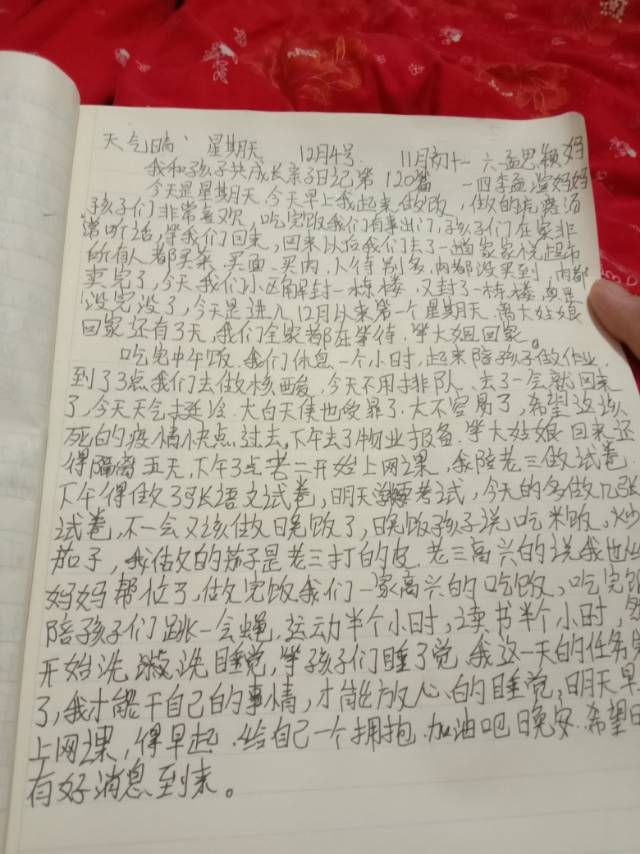 天气晴、星期天 12月4号 11月初十一 六孟思颖妈
我和孩子共成长亲子日记第120篇 一四李孟滢妈妈
今天是星期天,今天早上我起来做饭,做的疙瘩汤
孩子们非常喜欢,吃完饭我们有事出门,孩子们在家非
常听话,等我们回来,回来以后我们去了一趟家家悦超市
所有人都买菜、买面、买肉,人特别多,肉都没买到,肉都
卖完了,今天我们小区解封一栋楼,又封了一栋楼,真是
没完没了,今天是进入12月以来第一个星期天,离大姑娘
回家还有3天,我们全家都在等待,等大姐回家。
吃完中午饭,我们休息一个小时,起来陪孩子做作业,
到了3点我们去做核酸,今天不用排队,去了一会就回来
了,今天天气挺冷,大白天使也受罪了,太不容易了,希望这该
死的疫情快点过去,下午去了物业报备,等大姑娘回来还
得隔离五天,下午3点老二开始上网课,我陪老三做试卷
下午得做了3张语文试卷,明天考试,今天的多做几张
试卷,不一会又该做晚饭了,晚饭孩子说吃米饭,炒
茄子,我做的茄子是老三打的皮,老三高兴的说我也
妈妈帮忙了,做完饭我们一家高兴的吃饭,吃完饭
陪孩子们跳一会绳,运动半个小时,读书半个小时,
开始洗漱洗睡觉,等孩子们睡了觉,我这一天的任务
了,我才能干自己的事情,才能放心的睡觉,明天早
上网课,得早起,给自己一个拥抱,加油吧晚安,希望
有好消息到来。